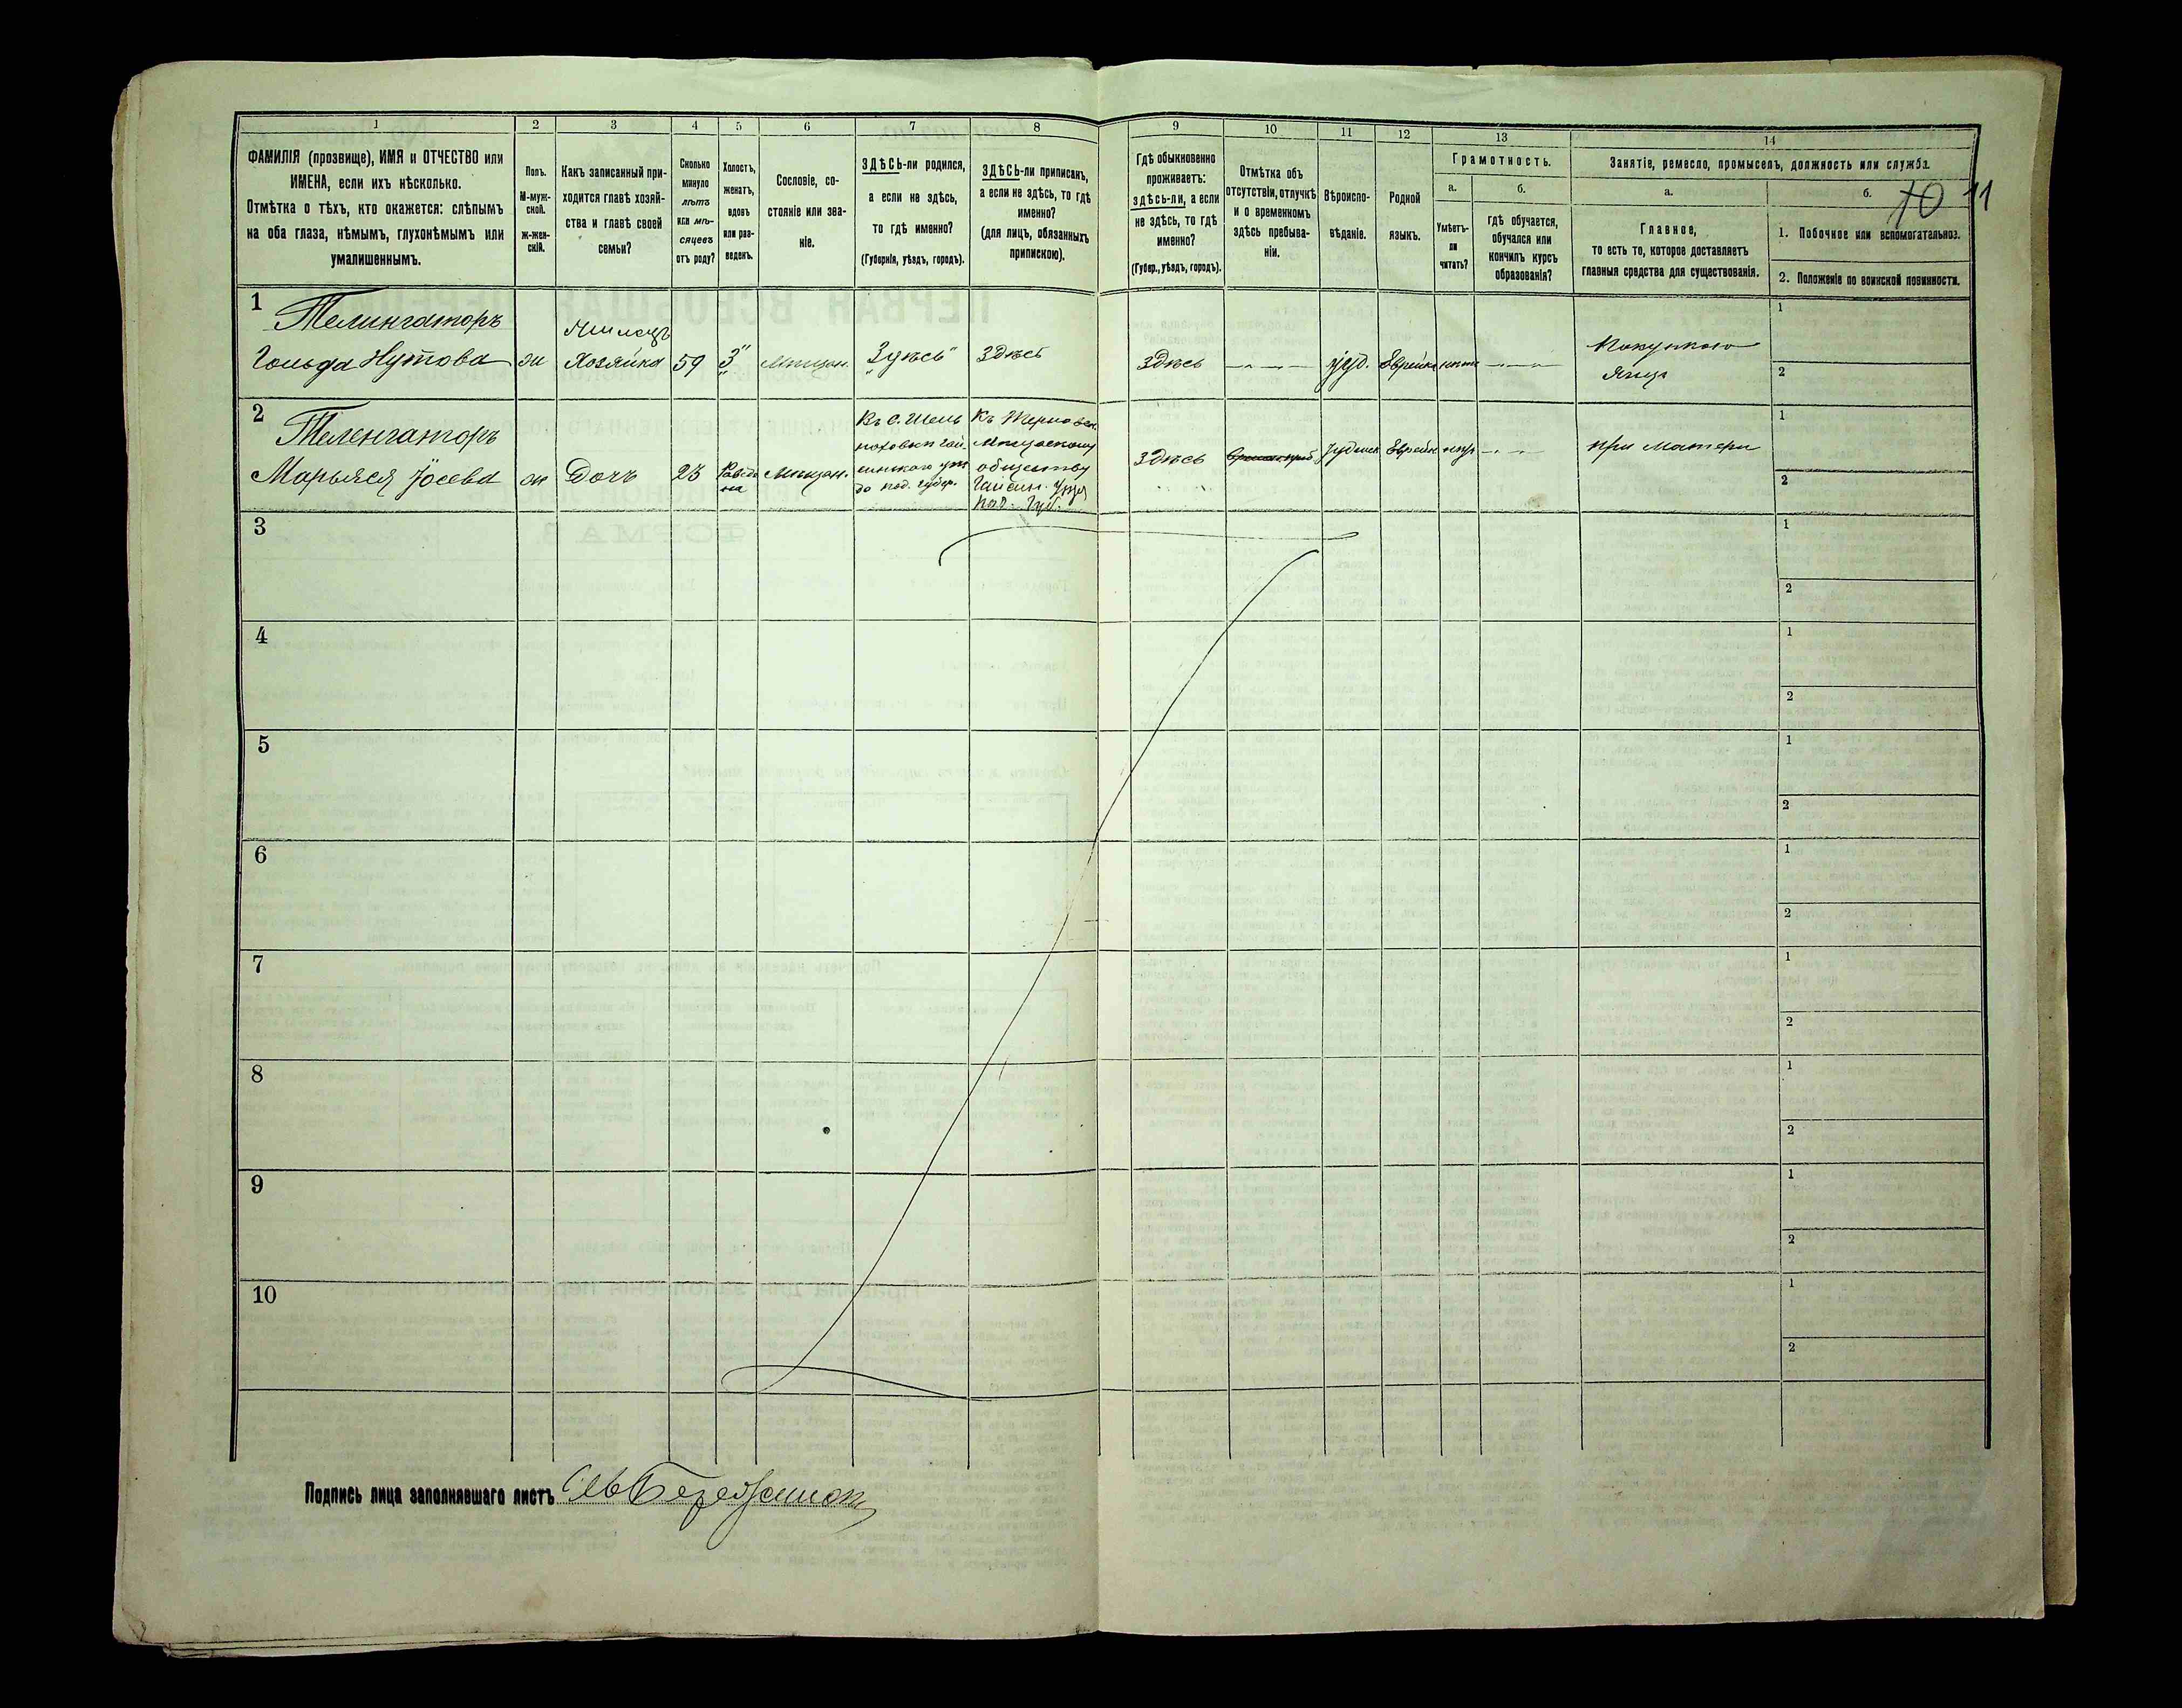 1 2 3 4 5 6 7 8 9 10 11 12 13 14
ФАМИЛІЯ (прозвище), ИМЯ и ОТЧЕСТВО или
ИМЕНА, если ихъ нѣсколько.
Отмѣтка о тѣхъ, кто окажется: слѣпымъ
на оба глаза, нѣмымъ, глухонѣмымъ или
умалишеннымъ.
Полъ.
М-муж-
ской.
Ж-жен-
скій.
Какъ записанный при-
ходится главѣ хозяй-
ства и главѣ своей
семьи?
Сколько
минуло
лѣтъ
или мѣ-
сяцевъ
отъ роду?
Холостъ,
женатъ,
вдовъ
или раз-
веденъ.
Сословіе, со-
стояніе или зва-
ніе.
ЗДѢСЬ-ли родился,
а если не здѣсь,
то гдѣ именно?
(Губернія, уѣздъ, городъ).
ЗДѢСЬ-ли приписанъ,
а если не здѣсь, то гдѣ
именно?
(для лицъ, обязанныхъ
припискою).
Гдѣ обыкновенно
проживаетъ:
здѣсь-ли, а если
не здѣсь, то гдѣ
именно?
(Губер., уѣздъ, городъ).
Отмѣтка объ
отсутствіи, отлучкѣ
и о временномъ
здѣсь пребыва-
ніи.
Вѣроиспо-
вѣданіе.
Родной
языкъ.
Грамотность.
а.
Умѣетъ-
ли
читать?
б.
гдѣ обучается,
обучался или
кончилъ курсъ
образованія?
Занятіе, ремесло, промыселъ, должность или служба.
а.
Главное,
то есть то, которое доставляетъ
главныя средства для существованія.
б.
10 11
1. Побочное или вспомогательное.
2. Положеніе по воинской повинности.
1
Телингаторъ
Гольда Нутова
ж
Хозяйка
59
Мѣщан.
Здѣсь
Здѣсь
Здѣсь
іуд.
Еврейк
Яица
1
2
2
Теленгаторъ
Марьяся Іосева
ж
Дочь
23
Мѣщан.
Въ с.
под. губер.
Мѣщанскому
обществу
Гайсин.
Под. Губ.
Здѣсь
Еврейк
при матери
1
2
3
1
2
4
1
2
5
1
2
6
1
2
7
1
2
8
1
2
9
1
2
10
1
2
Подпись лица заполнявшаго листъ